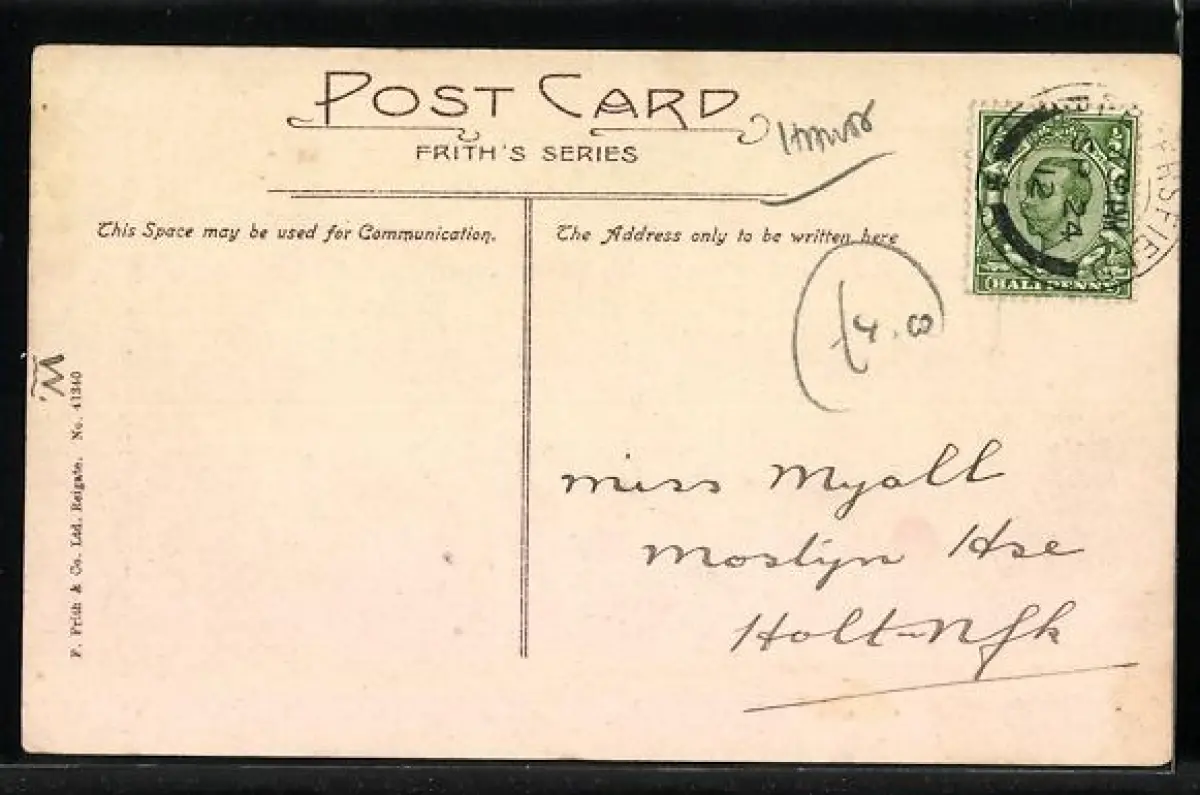 POST CARD
FRITH'S SERIES
This Space may be used for Communication.
The Address only to be written here
HALFPENNY
24
12
4.8
Miss Myall
Moslyn Hse
Holt-Nfk
F. Frith & Co. Ltd. Reigate. No. 41340